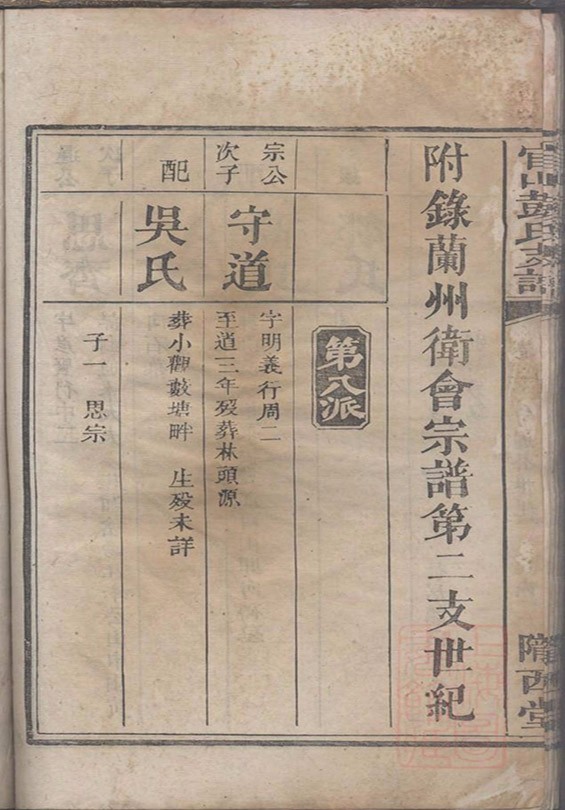 附錄蘭州衛會宗譜第二支世紀
第八派
宗公
次子
守道
字明義行周二
至道三年歿葬林頭源
配
吳氏
葬小卿數塘畔 生歿未詳
子一 思宗
彭氏支譜
隴西堂